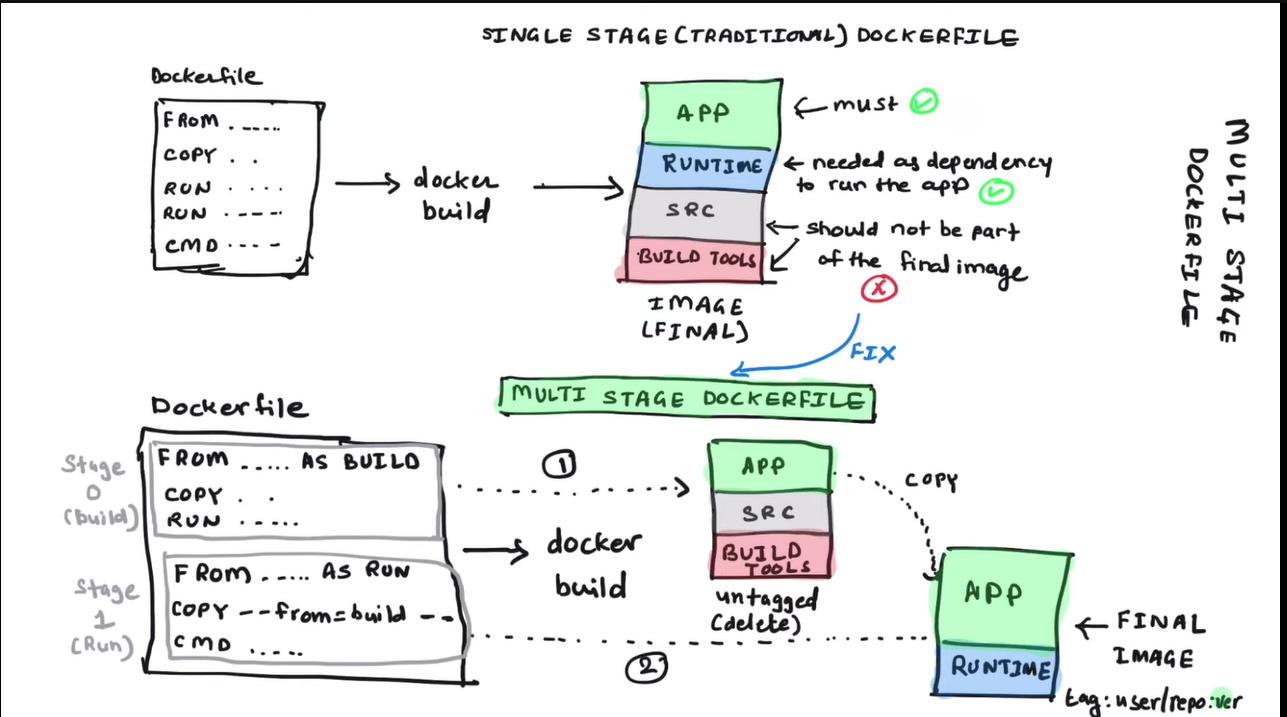 SINGLE STAGE (TRADITIONAL) DOCKERFILE
Dockerfile
FROM . -----
COPY . .
RUN . . . .
RUN . ----
CMD . . . -
docker
build
APP
RUNTIME
SRC
BUILD TOOLS
IMAGE
(FINAL)
must
needed as dependency
to run the app
should not be part
of the final image
x
FIX
MULTI STAGE
DOCKERFILE
MULTI STAGE DOCKERFILE
Dockerfile
Stage
0
(build)
FROM ..... AS BUILD
COPY . .
RUN .....
Stage
1
(Run)
FROM ..... AS RUN
COPY --from=build --
CMD .....
1
docker
build
2
APP
SRC
BUILD
TOOLS
untagged
(delete)
COPY
APP
RUNTIME
FINAL
IMAGE
tag: user/repo:ver